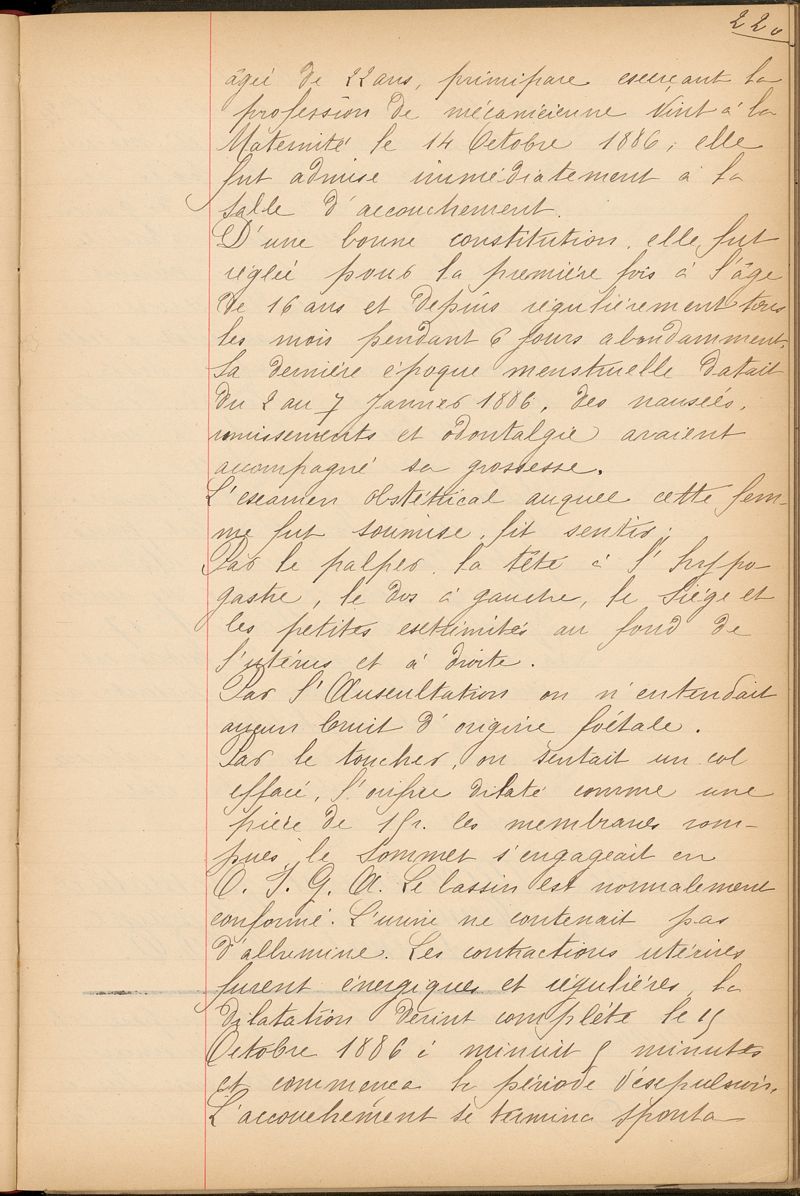 220
âgée de 22 ans, primipare exerçant la
profession de mécanicienne vint à la
Maternité le 14 Octobre 1886, elle
fut admise immédiatement à la
salle d'accouchement.
D'une bonne constitution, elle fut
réglée pour la première fois à l'âge
de 16 ans et depuis régulièrement tous
les mois pendant 6 jours abondamment.
Sa dernière époque menstruelle datait
du 2 au 7 Janvier 1886, des nauseés,
vomissements et odontalgie avaient
accompagné sa grossesse.
L'examen obstétrical auquel cette fem-
me fut soumise, fit sentir:
Par le palper, la tête à l'hypo-
gastre, le dos à gauche, le siège et
les petites extrémités au fond de
l'utérus et à droite.
Par l'Auscultation on n'entendait
aucun bruit d'origine foétale.
Par le toucher, on sentait un col
effacé, l'orifice dilaté comme une
pièce de 1fr. les membranes rom-
pues, le sommet s'engageait en
O. I. G. A. Le bassin est normalement
conformé. L'urine ne contenait pas
d'albumine. Les contractions utérines
furent énergiques et régulières, la
dilatation devint complète le 15
Octobre 1886 à minuit 5 minutes
et commença la période d'expulsion.
L'accouchement se termina sponta